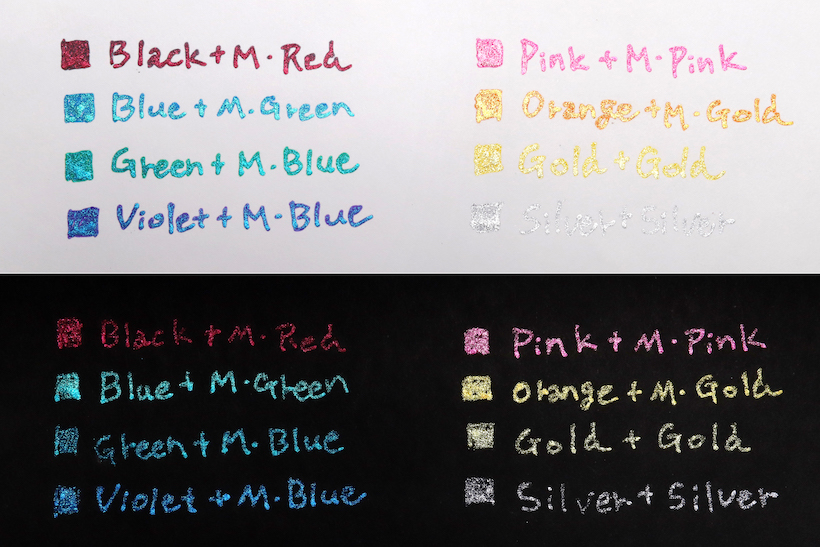 Black + M. Red
Blue + M. Green
Green + M. Blue
Violet + M. Blue
Pink + M. Pink
Orange + M. Gold
Gold + Gold
Silver + Silver
Black + M. Red
Blue + M. Green
Green + M. Blue
Violet + M. Blue
Pink + M. Pink
Orange + M. Gold
Gold + Gold
Silver + Silver